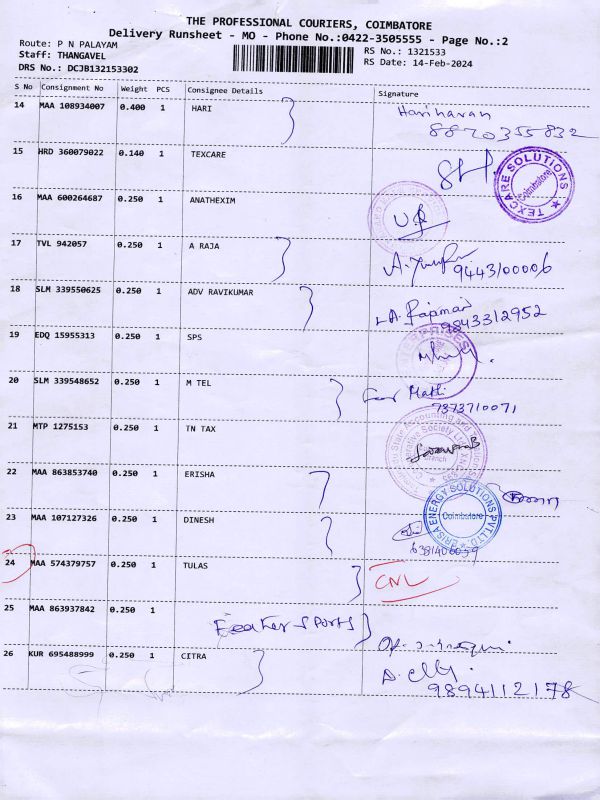 THE PROFESSIONAL COURIERS, COIMBATORE
Delivery Runsheet - MO - Phone No.:0422-3505555 - Page No.:2
Route: P N PALAYAM
Staff: THANGAVEL
DRS No.: DCJB132153302
RS No.: 1321533
RS Date: 14-Feb-2024
S No Consignment No Weight PCS Consignee Details Signature
14 MAA 108934007 0.400 1 HARI Hariharan
8870355832
15 HRD 360079022 0.140 1 TEXCARE
TEXCARE SOLUTIONS
Coimbatore
16 MAA 600264687 0.250 1 ANATHEXIM
17 TVL 942057 0.250 1 A RAJA
9443100006
18 SLM 339550625 0.250 1 ADV RAVIKUMAR
9843312952
19 EDQ 15955313 0.250 1 SPS
20 SLM 339548652 0.250 1 M TEL
7373710071
21 MTP 1275153 0.250 1 TN TAX
22 MAA 863853740 0.250 1 ERISHA
ERISA ENERGY SOLUTIONS PVT LTD.
Coimbatore
23 MAA 107127326 0.250 1 DINESH
24 MAA 574379757 0.250 1 TULAS CNL
25 MAA 863937842 0.250 1 Feather sports
26 KUR 695488999 0.250 1 CITRA
9894112178